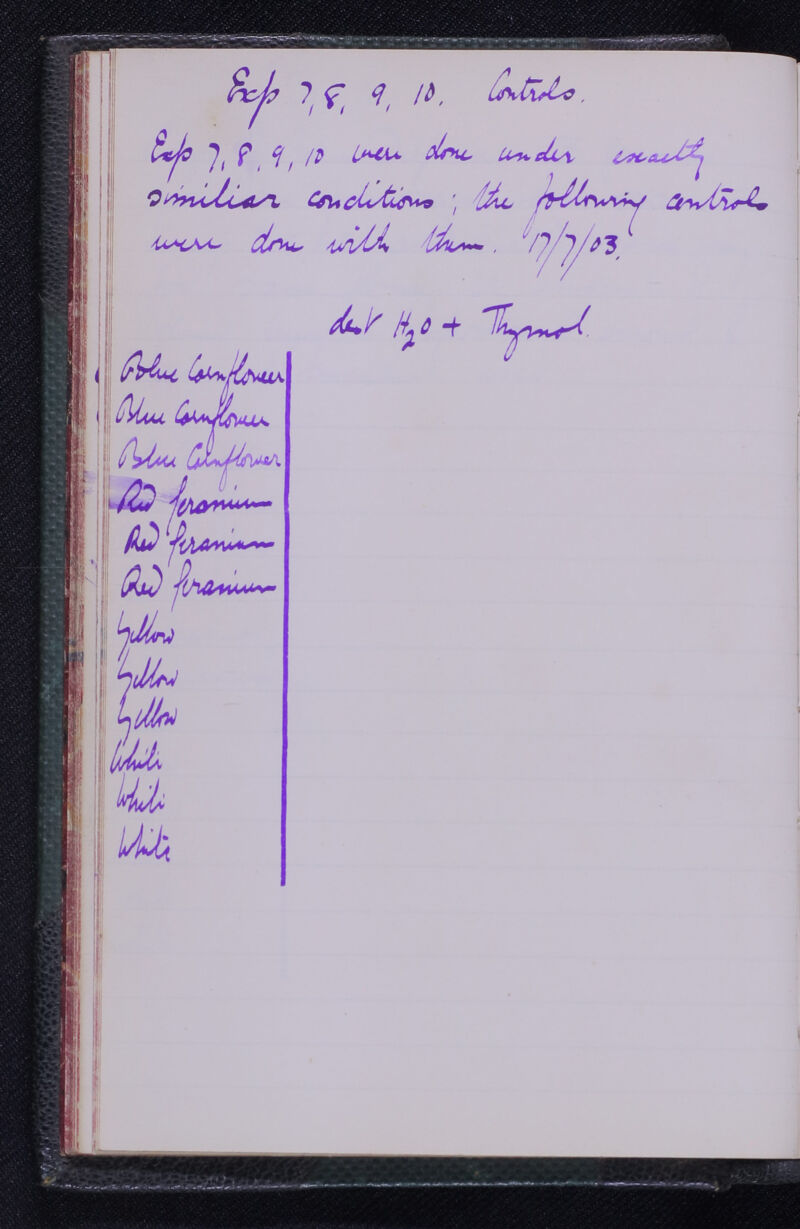 Exp 7, 8, 9, 10. Controls.
Exp 7, 8, 9, 10 were done under exactly
similiar conditions; the following controls
were done with them. 17/7/03.
dest H2O + Thymol.
Blue Cornflower
Blue Cornflower
Blue Cornflower
Red Geranium
Red Geranium
Red Geranium
Yellow
Yellow
Yellow
White
White
White